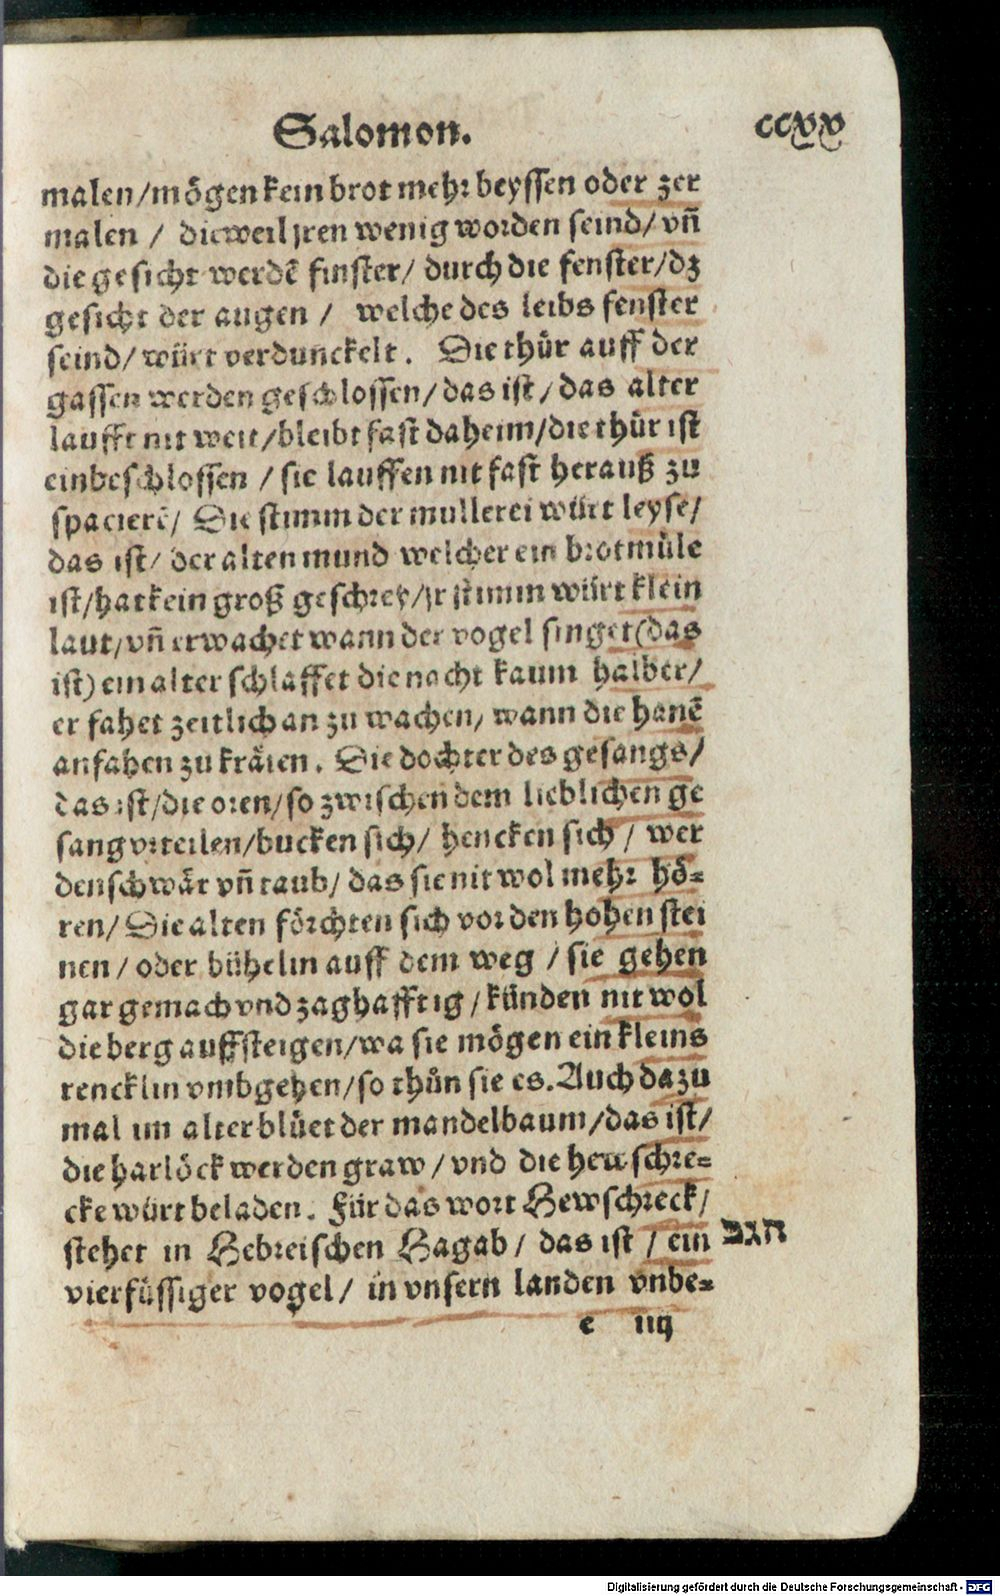 Salomon.
ccxx
malen/mögen kein brot mehr beyssen oder zer
malen / dieweil jren wenig worden seind/ vñ
die gesicht werdẽ finster/ durch die fenster/dz
gesicht der augen / welche des leibs fenster
seind/ würt verdunckelt. Die thür auff der
gassen werden geschlossen/das ist/das alter
laufft nit weit/bleibt fast daheim/die thür ist
einbeschlossen / sie lauffen nit fast herauß zu
spacierẽ/ Die stimm der mullerei würt leyse/
das ist/ der alten mund welcher ein brotmüle
ist/hat kein groß geschrey/jr stimm würt klein
laut/vñ erwachet wann der vogel singet (das
ist) ein alter schlaffet die nacht kaum halber/
er fahet zeitlich an zu wachen/ wann die hanẽ
anfahen zu kräien. Die dochter des gesangs/
das ist/die oren/so zwischen dem lieblichen ge
sang vrteilen/bucken sich/ hencken sich / wer
den schwär vñ taub/ das sie nit wol mehr hö⸗
ren/ Die alten förchten sich vor den hohen stei
nen / oder bühelin auff dem weg / sie gehen
gar gemach vnd zaghafftig/künden nit wol
die berg auffsteigen/wa sie mögen ein kleins
rencklin vmbgehen/so thůn sie es. Auch dazu
mal im alter blüet der mandelbaum/das ist/
die harlöck werden graw/vnd die hewschre⸗
cke würt beladen. Für das wort Hewschreck/
stehet in Hebreischen Hagab/ das ist / ein
חגב
vierfüssiger vogel/ in vnsern landen vnbe⸗
e iiij
Digitalisierung gefördert durch die Deutsche Forschungsgemeinschaft - DFG